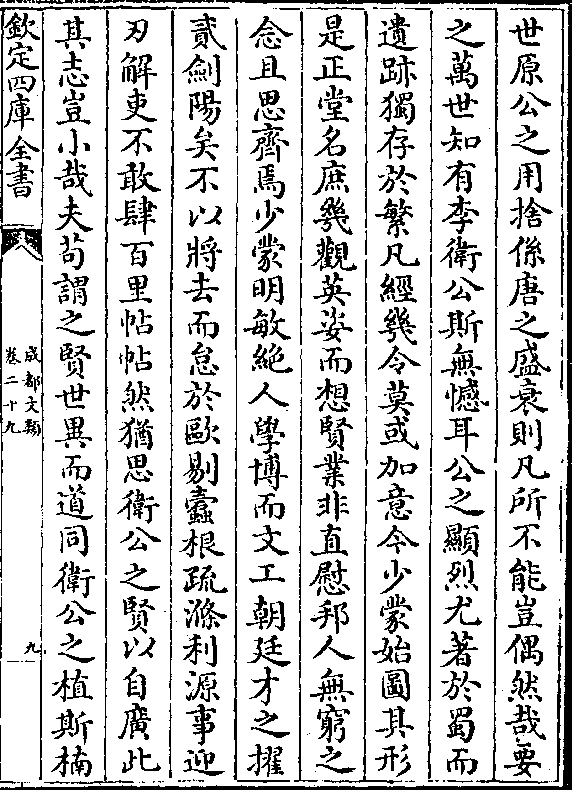 世原公之用捨係唐之盛衰則凡所不能豈偶然哉要
之萬世知有李衛公斯無憾耳公之顯烈尤著於蜀而
遺跡獨存於繁凡經幾令莫或加意今少蒙始圖其形
是正堂名庶幾觀英姿而想賢業非直慰邦人無窮之
念且思齊焉少蒙明敏絶人學博而文工朝廷才之擢
貳劍陽矣不以將去而怠於歐剔蠧根疏滌利源事迎
刃解吏不敢肆百里帖帖然猶思衛公之賢以自廣此
其志豈小哉夫苟謂之賢世異而道同衛公之植斯楠
欽定四庫全書
成都文類
卷二十九
九